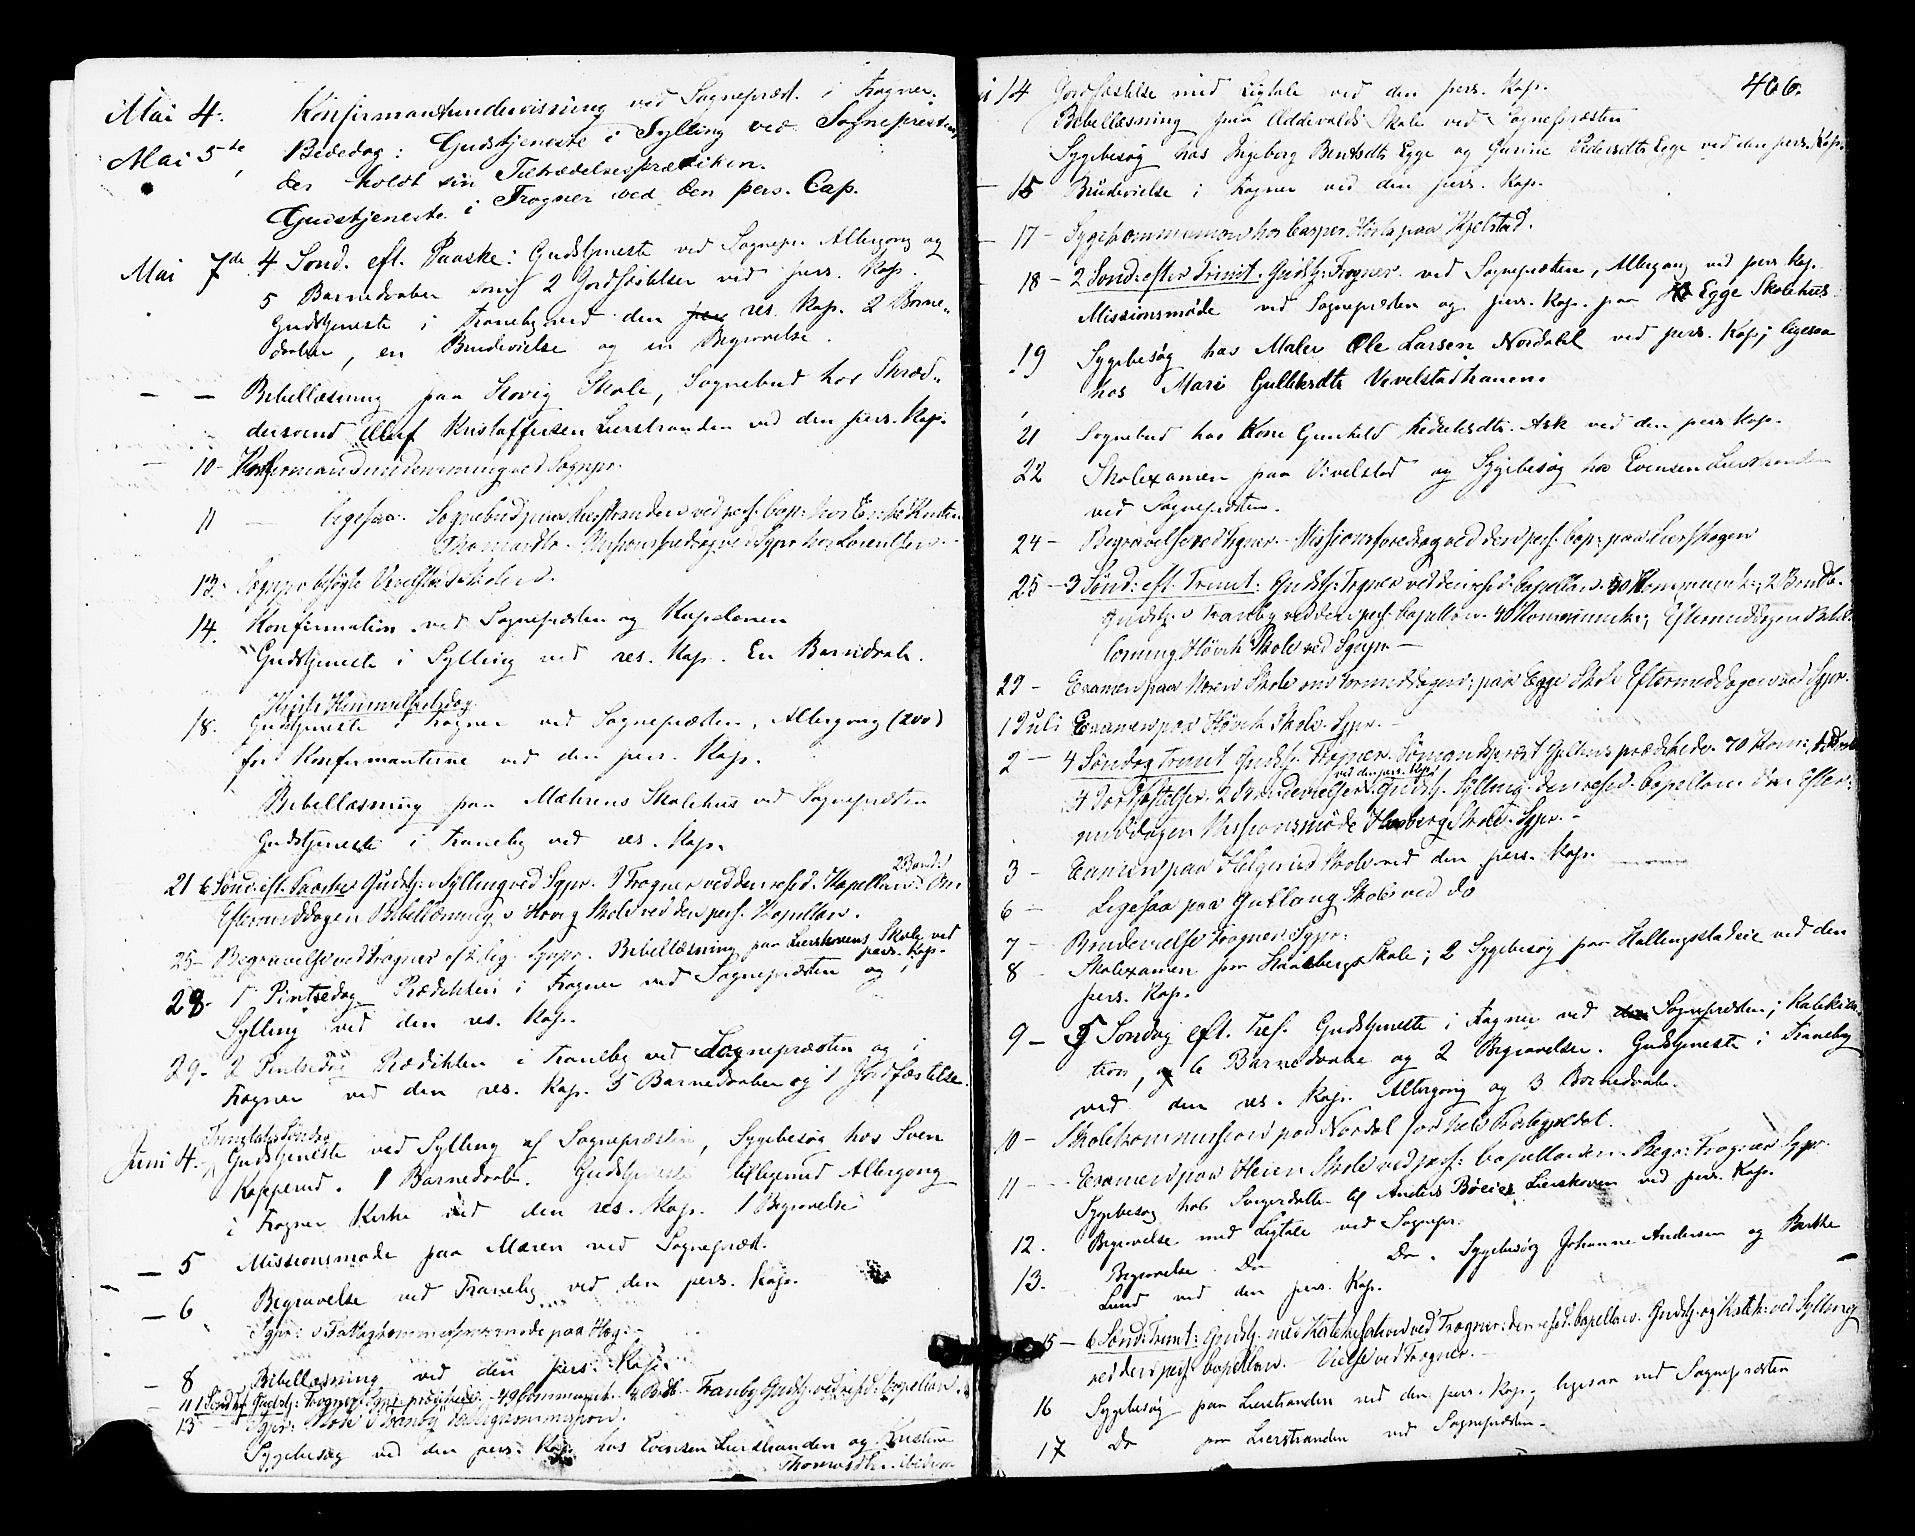 Mai 4. Konfirmantundervisning ved Sognepræst. i Frogner.
Mai 5te, Bededag: Gudstjeneste i Sylling ved Sognepresten,
der holdt sin Tiltrædelsesprædiken.
Gudstjeneste i Frogner ved den pers. Cap.
Mai 7de 4 Sønd. eft. Paaske: Gudstjeneste ved Sognepr. Altergang og
5 Barnedaaber samt 2 Jordfæstelser ved pers. Kap.
Gudstjeneste i Traneby ved den res. Kap. 2 Barne-
daaber, en Brudevielse og en Begravelse.
— — Bibellæsning paa Høvig Skole, Sognebud hos Skræd-
dersvend Kristoffersen Lierstranden ved den pers. Kap.
— 10 - Konfirmandundervisning ved Sognpr.
11 ligesaa. Sognebud paa Lierstranden ved pers. Cap: hos Enke
Thomasdtr - Missionsforedrag ved Sgpr hos Lorentsen -
13. Sognpr besøgte Vivelstad Skole.
14. Konfirmation ved Sognepræsten og Kapelanen
Gudstjeneste i Sylling ved res. Kap. En Barnedaab.
Kristi Himmelfartsdag
18. Gudstjeneste i Frogner ved Sognepræsten, Altergang (200)
for Konfirmanterne ved den pers. Kap.
Bibellæsning paa Mæhrens Skolehus ved Sognepræsten
Gudstjeneste i Traneby ved res. Kap.
21 6 Sønd: eft. Paaske Gudstj: i Sylling ved Sgpr. I Frogner ved den resid. Kapellan. 2 Barnd:
Eftermiddagen Bibellæsning i Høvig Skole ved den pers. Kapellan.
25 - Begravelse ved Frogner af Sgpr. Bibellæsning paa Lierskovens Skole ved
pers. Kap.
28. 1 Pintsedag Prædiken i Frogner ved Sognepræsten og i
Sylling ved den res. Kap.
29 - 2 Pintsedag Prædiken i Traneby ved Sognepræsten og i
Frogner ved den res. Kap. 5 Barnedaaber og 1 Jordfæstelse.
Trinitatis Søndag
Juni 4. Gudstjeneste ved Sylling af Sognepræsten, Sygebesøg hos Sven
Kopperud. 1 Barnedaab. Gudstjeneste tilligemed Altergang
i Frogner Kirke ved den res. Kap. 1 Begravelse
— 5 Missionsmøde paa Mæren ved Sognepræst.
— 6 Begravelse ved Traneby ved den pers. Kap.
Sgpr: i Fattigkommissionsmøde paa Hæg. -
— 8 Bibellæsning ved den pers. Kap.
11 1 Sønd. Gudstj: Frogner Sgpr prædikede. - 49 Communik. Tranby Gudstj. ved resid: Capellan.
13 - Sgpr: Møde i Tranby Fattigkommission.
Sygebesøg ved den pers. Kap. hos Evensen Lierstranden og Kristine
Thomasdtr. ibidem
14 Jordfæstelse med Ligtale ved den pers. Kap. 406.
Bibellæsning paa Oddevalds Skole ved Sognepræsten
Sygebesøg hos Ingeborg Berntsdtr Egge og Gunine Pedersdtr Egge ved den pers. Kap.
— 15 Brudevielse i Frogner ved den pers. Kap.
— 17 - Sygekommunion hos Casper paa Kjelstad.
18 - 2 Sønd: efter Trinit. Gudstj: Frogner. ved Sognepræsten, Altergang ved pers. Kap.
Missionsmøde ved Sognepræsten og pers. Kap. paa Egge Skolehus.
19 Sygebesøg hos Maler Ole Larsen Nordahl ved pers. Kap; ligesaa
hos Mari Gulliksdtr Vivelstadhaugen.
21 Sognebud hos Kone Gunhild Ask ved den pers. Kap.
22 Skolexamen paa Vivelstad og Sygebesøg hos Evensen Lierstranden
ved Sognepræsten.
24 - Begravelse ved Frogner. - Missionsforedrag ved den pers. Cap: paa Lierskogen
25 - 3 Sønd: eft. Trinit: Gudstj: Frogner ved den resid. Capellan. 30 Kommunik:, 2 Barndb.
Gudstj. i Tranby ved den pers. Capellan. 40 Kommunik:; Eftermiddagen Bibel-
læsning Høvik Skole ved Sgpr. —
29 - Examen paa Mæren Skole om Formiddagen; paa Egge Skole Eftermiddagen ved Sgpr.
1 Juli Examen paa Høvik Skole. Sgpr. -
2 — 4 Søndag Trinit Gudstj. Frogner. Sømandspræst prædikede. 70 Kom:,
4 Jordfæstelser. 2 Brudevielser ved den pers. Kap. Gudstj. Sylling. den resid. Capellan. Om Efter-
middagen Missionsmøde Skole. Sgpr. -
3 - Examen paa Helgerud Skole ved den pers. Kap.
6 - Ligesaa paa Gullaug Skole ved do
7 - Brudevielse Frogner Sgpr.
8 - Skolexamen paa Skole; 2 Sygebesøg paa Hallingstadeie ved den
pers. Kap.
9 - 5 Søndag eft. Tref. Gudstjeneste i Frogner ved Sognepræsten; Katekisa-
tion, 6 Barnedaabe og 2 Begravelser. Gudstjeneste i Traneby
ved den res. Kap. Altergang og 3 Barnedaabe.
10 - Skolekommission paa Nordal for hele Præstegjeldet.
11 - Examen paa Heien Skole ved pers: Capellanen. Begr: Frogner Sgpr.
Sygebesøg hos Svigerdatter af Anders Lierskoven ved pers. Kap.
12. Begravelse med Ligtale ved Sognepr.
13. Begravelse Do Do. Sygebesøg Johanne Andersen og Berthe
Lund ved den pers. Kap.
15 - 6 Sønd: Trinit: Gudstj. med Katekisation ved Frogner: den resid. Capellan. Gudstj. og Katek: ved Sylling
ved den pers. Capellan. - Vielse ved Frogner. -
16 Sygebesøg paa Lierstranden ved den pers. Kap; ligesaa ved Sognepræsten
17 Do paa Lierstranden ved Sognepræsten.